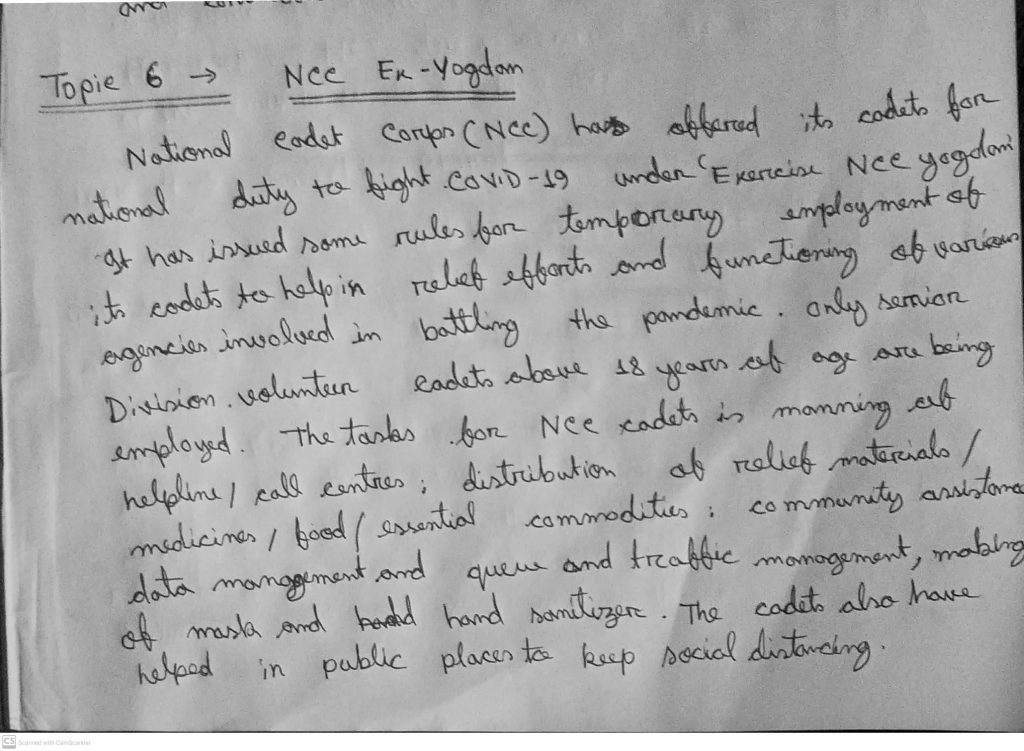 and
Topic 6 → NCC Ex-Yogdan
National Cadet Corps (NCC) has offered its cadets for
national duty to fight COVID-19 under 'Exercise NCC yogdan'
It has issued some rules for temporary employment of
its cadets to help in relief efforts and functioning of various
agencies involved in battling the pandemic. Only senior
Division volunteer cadets above 18 years of age are being
employed. The tasks for NCC cadets is manning of
helpline/ call centres; distribution of relief materials/
medicines/ food/ essential commodities; community assistance
data management and queue and traffic management, making
of mask and hand sanitizer. The cadets also have
helped in public places to keep social distancing.
CS Scanned with CamScanner